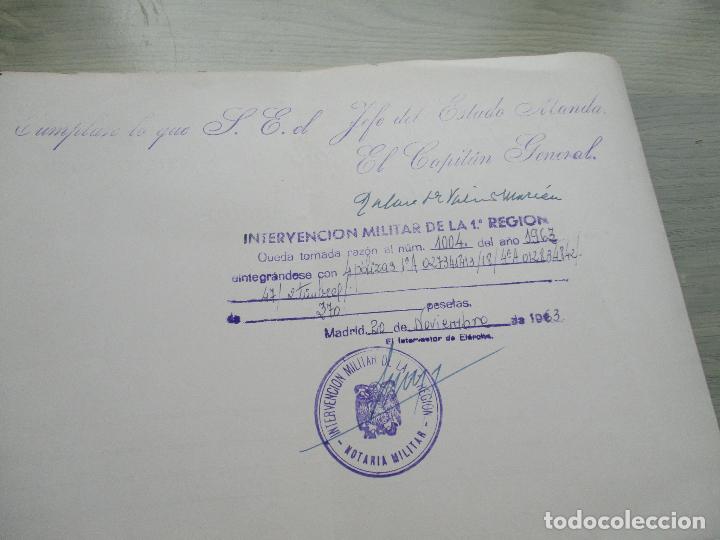 Cumplan lo que S. E. el Jefe del Estado Manda.
El Capitán General.
INTERVENCION MILITAR DE LA 1.ª REGION
Queda tomada razón al núm. 1004. del año 1963
eintegrándose con 4 polizas 1ª A 0273413
47/
de 270 pesetas.
Madrid, 20 de Noviembre de 1963.
El Interventor de Ejército,
INTERVENCION MILITAR DE LA 1ª REGION
- NOTARIA MILITAR -
todocoleccion.net